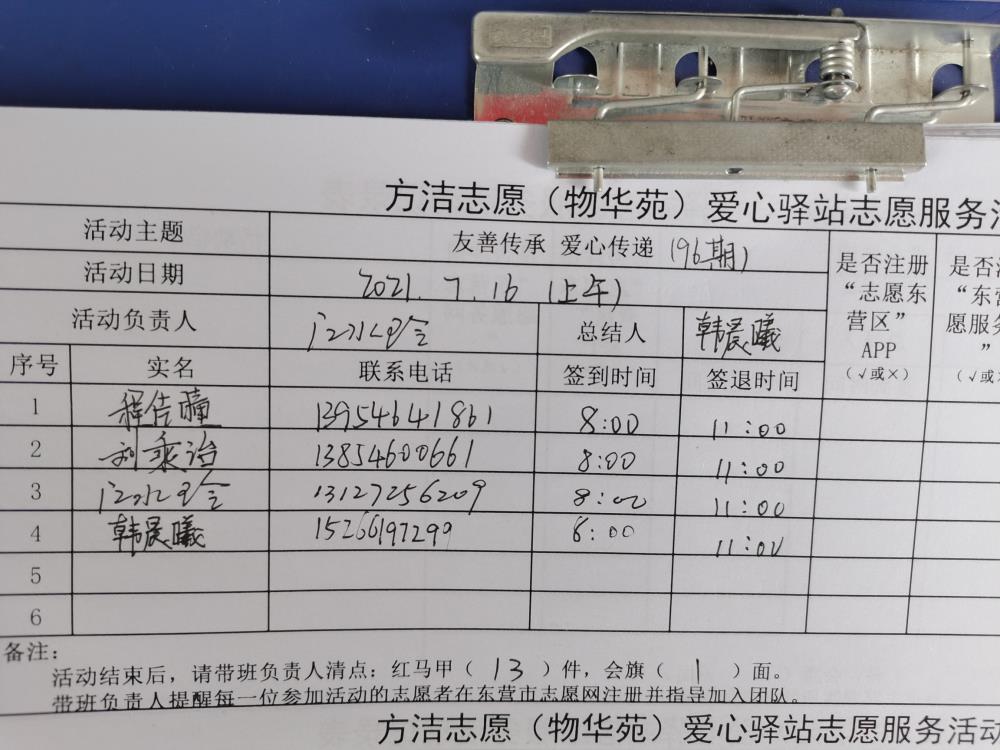 方洁志愿（物华苑）爱心驿站志愿服务活
活动主题 友善传承 爱心传递 (96期)
活动日期 2021.7.16 (上午)
活动负责人 总结人 韩晨曦
是否注册“志愿东营区”APP（√或×）
是否注 “东营 愿服务 ”（√或×
序号 实名 联系电话 签到时间 签退时间
1 程佶瞳 13954641861 8:00 11:00
2 刘乘治 13854600661 8:00 11:00
3 13127256209 8:00 11:00
4 韩晨曦 15266197299 8:00 11:00
5
6
备注：
活动结束后，请带班负责人清点：红马甲（ 13 ）件，会旗（ 1 ）面。
带班负责人提醒每一位参加活动的志愿者在东营市志愿网注册并指导加入团队。
方洁志愿（物华苑）爱心驿站志愿服务活动